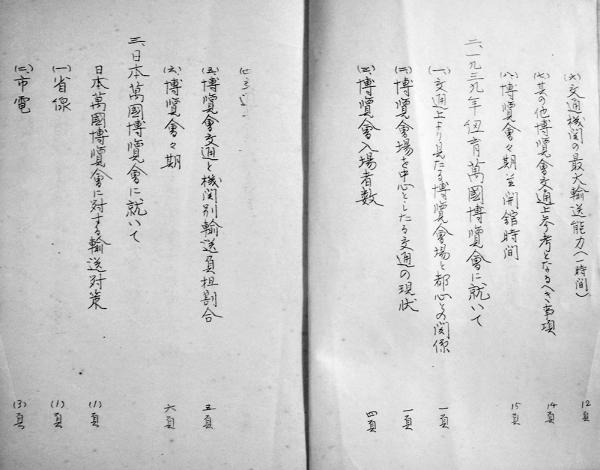 (六)交通機関の最大輸送能力(一時間) 12頁
(七)其の他博覧會交通上参考となるべき事項 14頁
(八)博覧會々期並開舘時間 15頁
二、一九三九年紐育萬國博覧會に就いて
(一)交通上より見たる博覧會場と都心との関係 一頁
(二)博覧會場を中心としたる交通の現状 一頁
(三)博覧會入場者数 四頁
(五)博覧會交通と機関別輸送負担割合 五頁
(六)博覧會々期 六頁
三、日本萬國博覧會に就いて
日本萬國博覧會に対する輸送対策 (1)頁
(一)省線 (1)頁
(二)市電 (3)頁